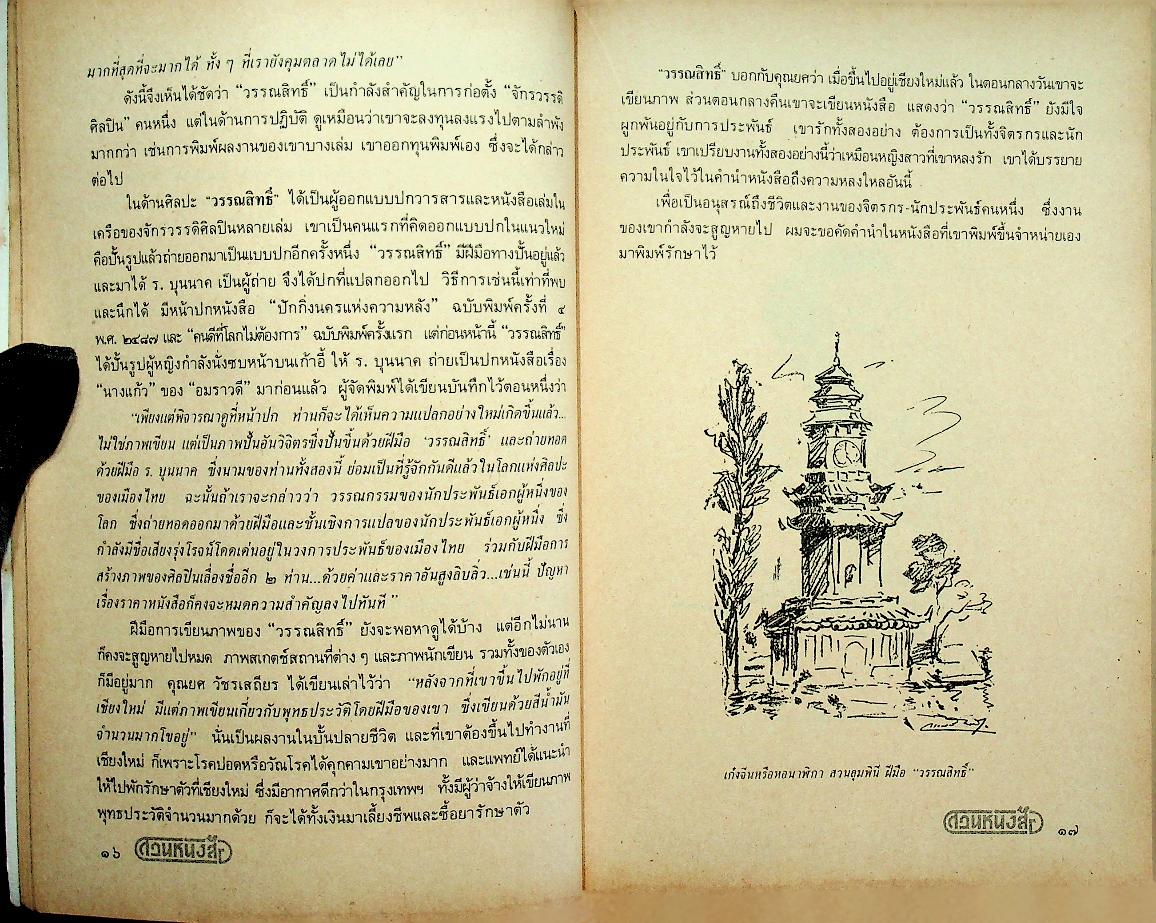 มากที่สุดที่จะมากได้ ทั้ง ๆ ที่เรายังคุมตลาดไม่ได้เลย”
ดังนี้จึงเห็นได้ชัดว่า “วรรณสิทธิ์” เป็นกำลังสำคัญในการก่อตั้ง “จักรวรรดิ
ศิลปิน” คนหนึ่ง แต่ในด้านการปฏิบัติ ดูเหมือนว่าเขาจะลงทุนลงแรงไปตามลำพัง
มากกว่า เช่นการพิมพ์ผลงานของเขาบางเล่ม เขาออกทุนพิมพ์เอง ซึ่งจะได้กล่าว
ต่อไป
ในด้านศิลปะ “วรรณสิทธิ์” ได้เป็นผู้ออกแบบปกวารสารและหนังสือเล่มใน
เครือของจักรวรรดิศิลปินหลายเล่ม เขาเป็นคนแรกที่คิดออกแบบปกในแนวใหม่
คือปั้นรูปแล้วถ่ายออกมาเป็นแบบปกอีกครั้งหนึ่ง “วรรณสิทธิ์” มีฝีมือทางปั้นอยู่แล้ว
และมาได้ ร. บุนนาค เป็นผู้ถ่าย จึงได้ปกที่แปลกออกไป วิธีการเช่นนี้เท่าที่พบ
และนึกได้ มีหน้าปกหนังสือ “ปักกิ่งนครแห่งความหลัง” ฉบับพิมพ์ครั้งที่ ๕
พ.ศ. ๒๔๘๗ และ “คนดีที่โลกไม่ต้องการ” ฉบับพิมพ์ครั้งแรก แต่ก่อนหน้านี้ “วรรณสิทธิ์”
ได้ปั้นรูปผู้หญิงกำลังนั่งซบหน้าบนเก้าอี้ ให้ ร. บุนนาค ถ่ายเป็นปกหนังสือเรื่อง
“นางแก้ว” ของ “อมราวดี” มาก่อนแล้ว ผู้จัดพิมพ์ได้เขียนบันทึกไว้ตอนหนึ่งว่า
“เพียงแต่พิจารณาดูที่หน้าปก ท่านก็จะได้เห็นความแปลกอย่างใหม่เกิดขึ้นแล้ว...
ไม่ใช่ภาพเขียน แต่เป็นภาพปั้นอันวิจิตรซึ่งปั้นขึ้นด้วยฝีมือ ‘วรรณสิทธิ์’ และถ่ายทอด
ด้วยฝีมือ ร. บุนนาค ซึ่งนามของท่านทั้งสองนี้ ย่อมเป็นที่รู้จักกันดีแล้วในโลกแห่งศิลปะ
ของเมืองไทย ฉะนั้นถ้าเราจะกล่าวว่า วรรณกรรมของนักประพันธ์เอกผู้หนึ่งของ
โลก ซึ่งถ่ายทอดออกมาด้วยฝีมือและชั้นเชิงการแปลของนักประพันธ์เอกผู้หนึ่ง ซึ่ง
กำลังมีชื่อเสียงรุ่งโรจน์โดดเด่นอยู่ในวงการประพันธ์ของเมืองไทย ร่วมกับฝีมือการ
สร้างภาพของศิลปินเลื่องชื่ออีก ๒ ท่าน...ด้วยค่าและราคาอันสูงลิบลิ่ว...เช่นนี้ ปัญหา
เรื่องราคาหนังสือก็คงจะหมดความสำคัญลงไปทันที”
ฝีมือการเขียนภาพของ “วรรณสิทธิ์” ยังจะพอหาดูได้บ้าง แต่อีกไม่นาน
ก็คงจะสูญหายไปหมด ภาพสเกตช์สถานที่ต่าง ๆ และภาพนักเขียน รวมทั้งของตัวเอง
ก็มีอยู่มาก คุณยศ วัชรเสถียร ได้เขียนเล่าไว้ว่า “หลังจากที่เขาขึ้นไปพักอยู่ที่
เชียงใหม่ มีแต่ภาพเขียนเกี่ยวกับพุทธประวัติโดยฝีมือของเขา ซึ่งเขียนด้วยสีน้ำมัน
จำนวนมากโขอยู่” นั่นเป็นผลงานในบั้นปลายชีวิต และที่เขาต้องขึ้นไปทำงานที่
เชียงใหม่ ก็เพราะโรคปอดหรือวัณโรคได้คุกคามเขาอย่างมาก และแพทย์ได้แนะนำ
ให้ไปพักรักษาตัวที่เชียงใหม่ ซึ่งมีอากาศดีกว่าในกรุงเทพฯ ทั้งมีผู้ว่าจ้างให้เขียนภาพ
พุทธประวัติจำนวนมากด้วย ก็จะได้ทั้งเงินมาเลี้ยงชีพและซื้อยารักษาตัว
๑๖ สวนหนังสือ
“วรรณสิทธิ์” บอกกับคุณยศว่า เมื่อขึ้นไปอยู่เชียงใหม่แล้ว ในตอนกลางวันเขาจะ
เขียนภาพ ส่วนตอนกลางคืนเขาจะเขียนหนังสือ แสดงว่า “วรรณสิทธิ์” ยังมีใจ
ผูกพันอยู่กับการประพันธ์ เขารักทั้งสองอย่าง ต้องการเป็นทั้งจิตรกรและนัก
ประพันธ์ เขาเปรียบงานทั้งสองอย่างนี้ว่าเหมือนหญิงสาวที่เขาหลงรัก เขาได้บรรยาย
ความในใจไว้ในคำนำหนังสือถึงความหลงใหลอันนี้
เพื่อเป็นอนุสรณ์ถึงชีวิตและงานของจิตรกร-นักประพันธ์คนหนึ่ง ซึ่งงาน
ของเขากำลังจะสูญหายไป ผมจะขอคัดคำนำในหนังสือที่เขาพิมพ์ขึ้นจำหน่ายเอง
มาพิมพ์รักษาไว้
เก๋งจีนหรือหอนาฬิกา สวนลุมพินี ฝีมือ “วรรณสิทธิ์”
สวนหนังสือ ๑๗